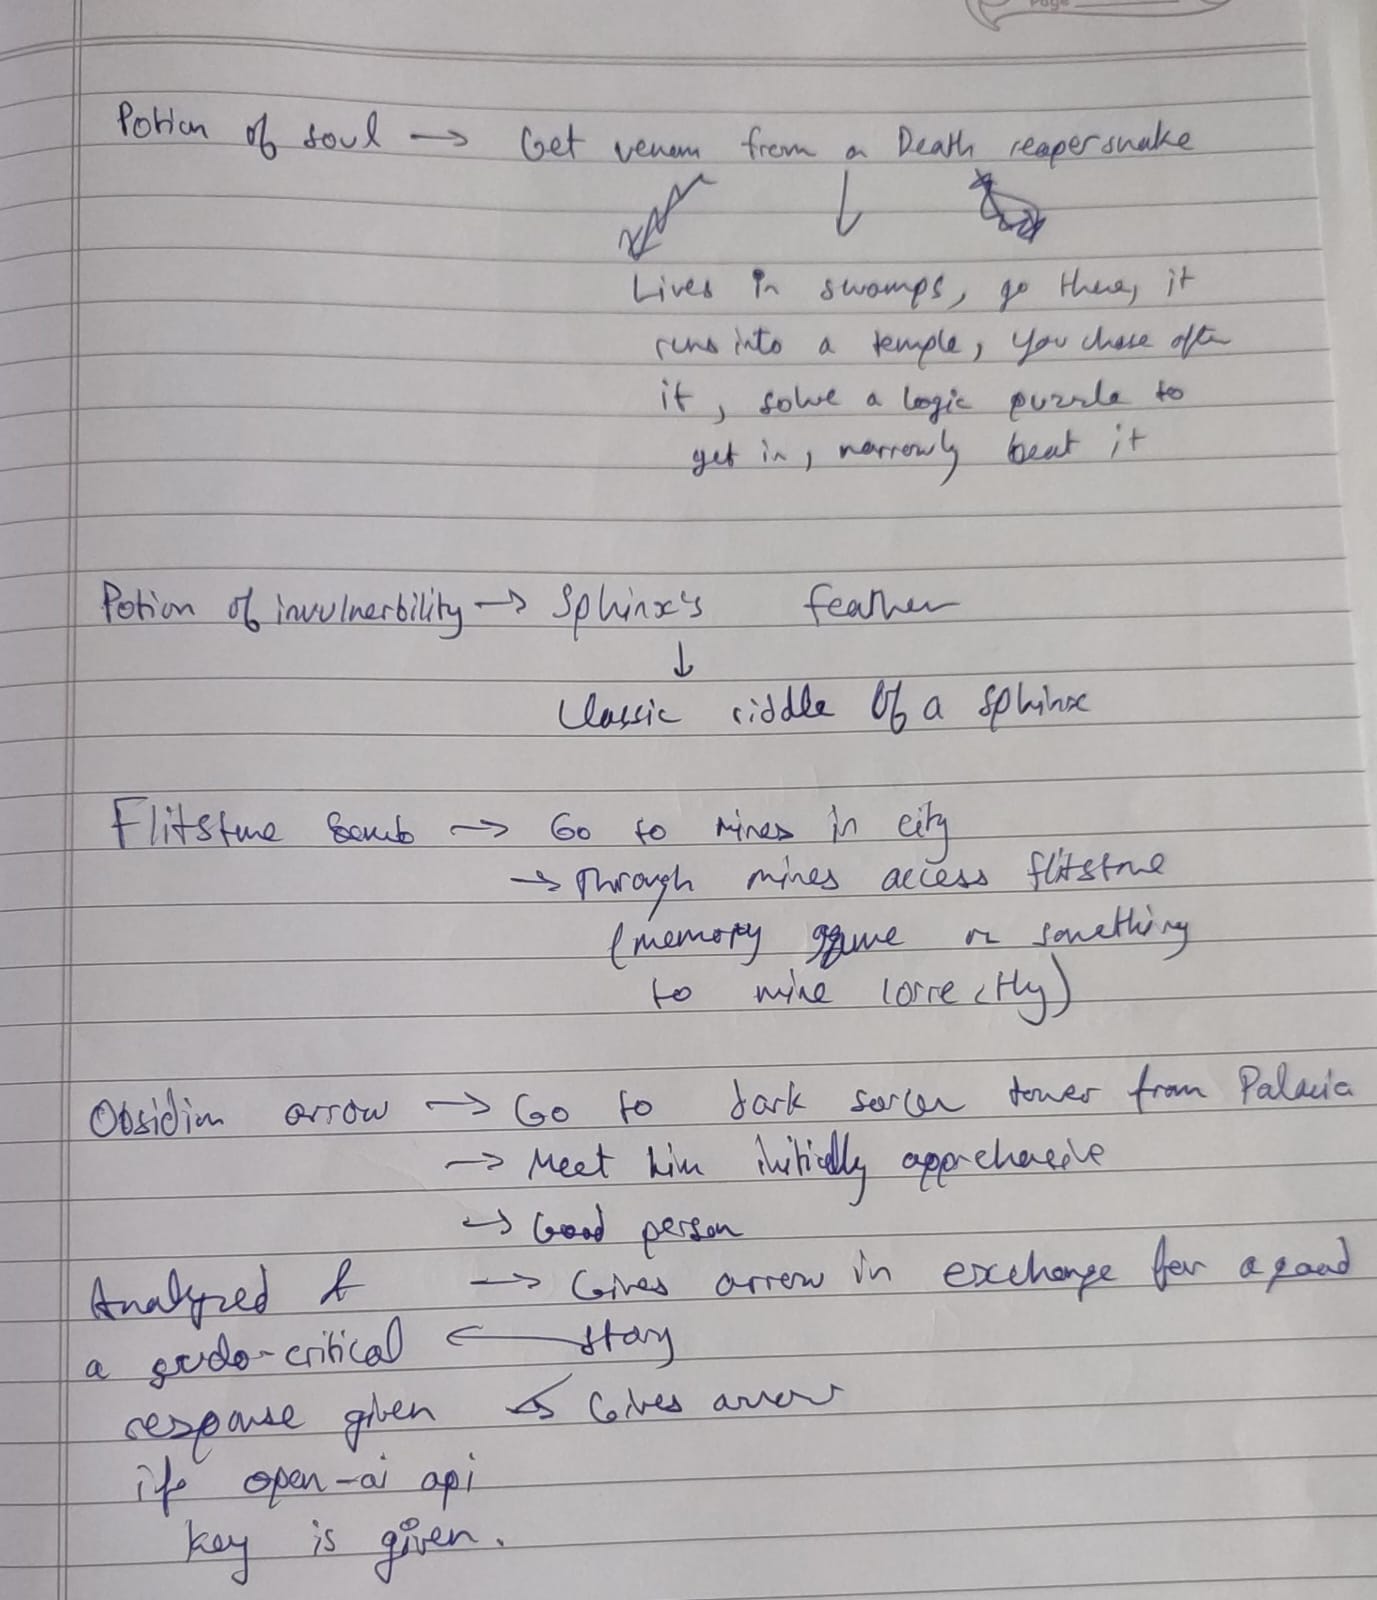 Page
Potion of soul → Get venom from a Death reaper snake
↓
Lives in swamps, go there, it
runs into a temple, you chase after
it, solve a logic puzzle to
get in, narrowly beat it
Potion of invulnerbility → Sphinx's feather
↓
Classic riddle of a sphinx
Flitstone bomb → Go to mines in city
→ Through mines access flitstone
(memory game or something
to mine correctly)
Obsidian arrow → Go to dark tower from Palacia
→ Meet him initially apprehensive
→ Good person
→ Gives arrow in exchange for a good
story
Analyzed &
a -critical
response given ← Gives arrow
if open-ai api
key is given.